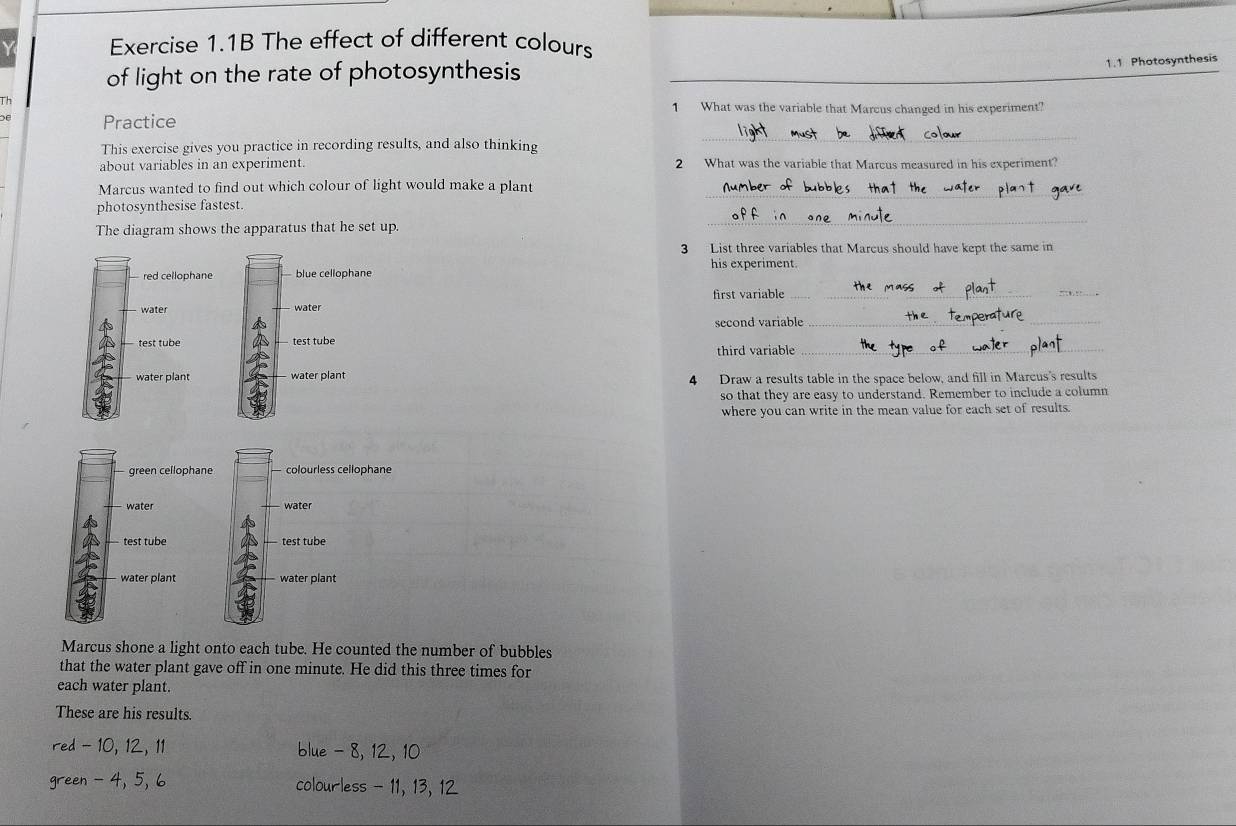 Exercise 1.1B The effect of different colours
of light on the rate of photosynthesis
Practice
This exercise gives you practice in recording results, and also thinking
about variables in an experiment.
Marcus wanted to find out which colour of light would make a plant
photosynthesise fastest.
The diagram shows the apparatus that he set up.
red cellophane
water
test tube
water plant
blue cellophane
water
test tube
water plant
green cellophane
water
test tube
water plant
colourless cellophane
water
test tube
water plant
Marcus shone a light onto each tube. He counted the number of bubbles
that the water plant gave off in one minute. He did this three times for
each water plant.
These are his results.
red – 10, 12, 11
blue – 8, 12, 10
green – 4, 5, 6
colourless – 11, 13, 12
1.1 Photosynthesis
1 What was the variable that Marcus changed in his experiment?
light must be different colour
2 What was the variable that Marcus measured in his experiment?
number of bubbles that the water plant gave
off in one minute
3 List three variables that Marcus should have kept the same in
his experiment.
first variable the mass of plant
second variable the temperature
third variable the type of water plant
4 Draw a results table in the space below, and fill in Marcus's results
so that they are easy to understand. Remember to include a column
where you can write in the mean value for each set of results.